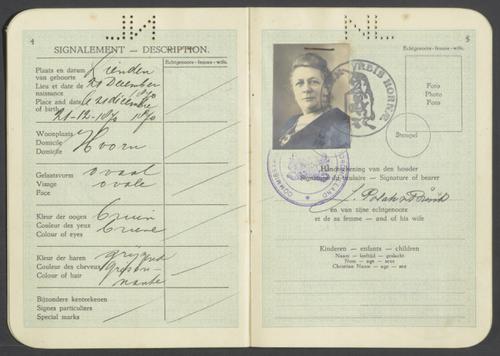 4
NL
SIGNALEMENT — DESCRIPTION.
Echtgenoote - femme - wife.
Plaats en datum van geboorte
Lienden
Lieu et date de naissance
21 December
1870
Place and date of birth
21-12-1870
1870
Woonplaats
Domicile
Domicile
Hoorn
Gelaatsvorm
Visage
Face
ovaal
ovale
Kleur der oogen
Couleur des yeux
Colour of eyes
bruin
Kleur der haren
Couleur des cheveux
Colour of hair
Bijzondere kenteekenen
Signes particuliers
Special marks
NL
5
Echtgenoote - femme - wife.
Foto
Photo
Foto
Stempel
Handteekening van den houder
Signature du titulaire — Signature of bearer
J. Polak
en van zijne echtgenoote
et de sa femme — and of his wife
Kinderen — enfants — children
Naam — leeftijd — geslacht
Nom — age — sexe
Christian Name — age — sex